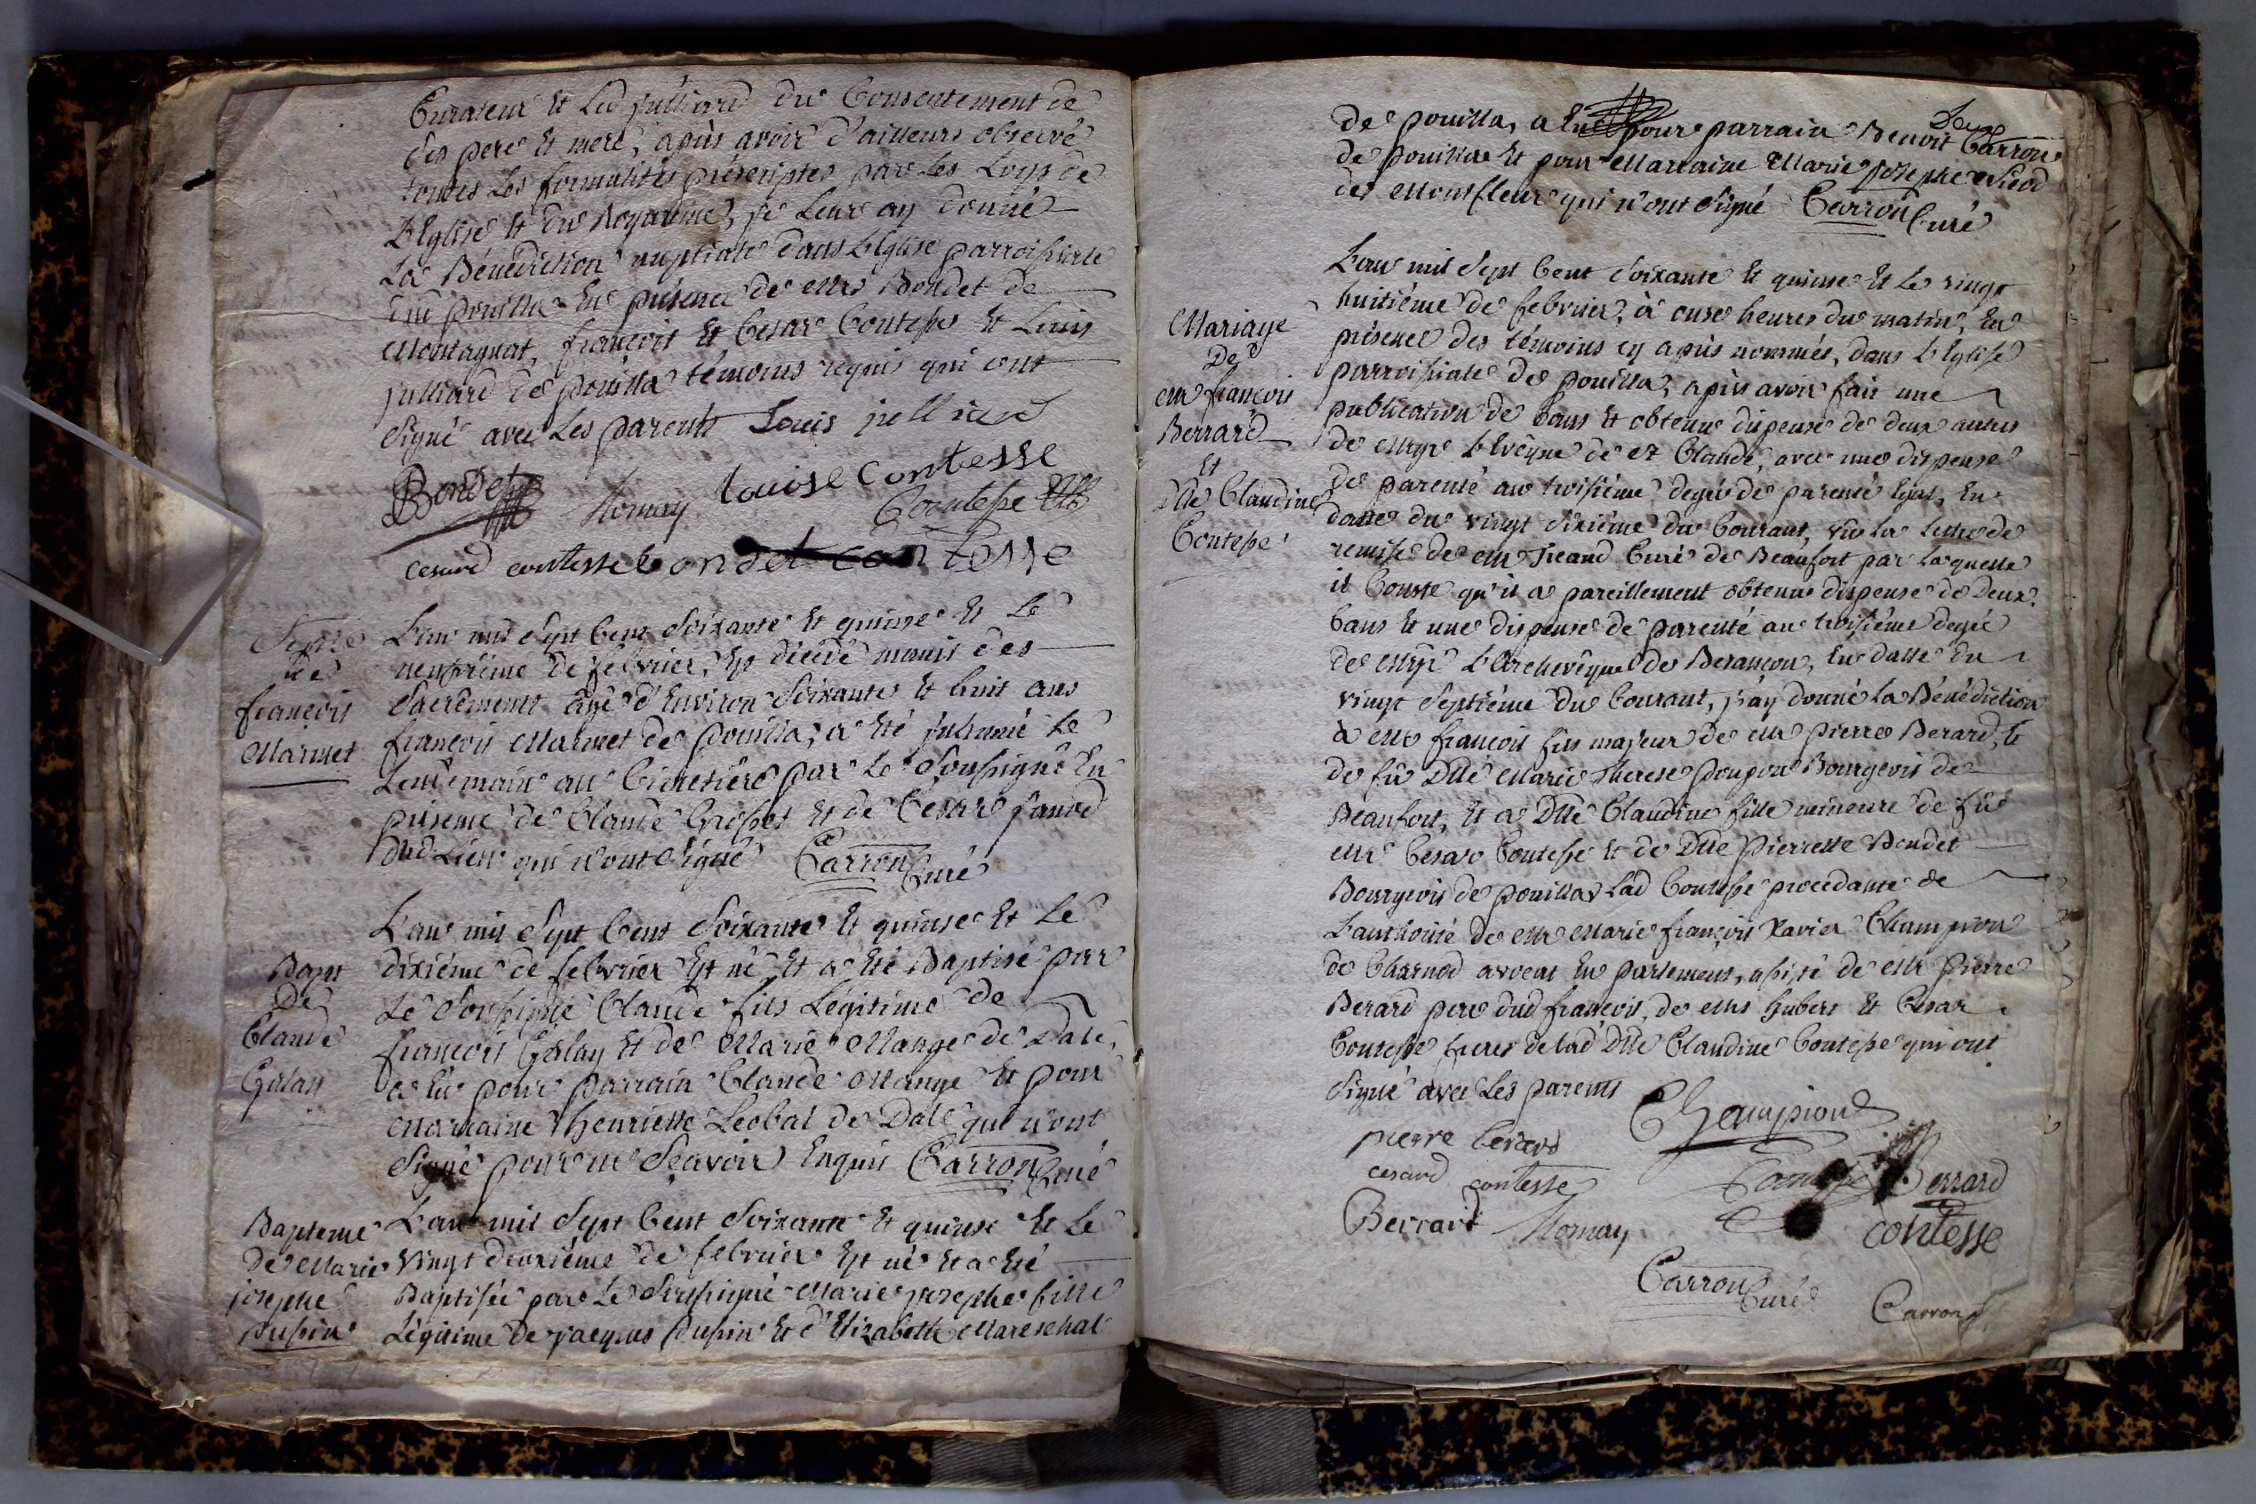 Curateur et Led julliard du Consentement de
Ses pere et mere, après avoir d'ailleurs observé
toutes Les formalités préscriptes par les Loys de
L'Eglise et du Royaume, je Leur ay donné
La Bénédiction nuptiale dans L'Eglise parroissiale
dud pouilla En présence de Mre Bondet de
Montagnat, françois Et Cesar Contesse et Louis
julliard de pouilla témoins requis qui ont
Signé avec Les parents Louis julliard
Bondet Nomay Louise contesse
Contesse
cesard contesse bondet contesse
De
françois
Marmet
L'an mil Sept Cent Soixante et quinse et Le
neufvième de février, Est décédé munis des
Sacréments agé d'Environ Soixante et huit ans
françois Marmet de pouilla, a été juhumé Le
Lendemain au Cimetière par Le Soussigné En
présence de Claude Grosset et de César
dud Lieu qui n'ont Signé Carron Curé
Bapt
De
Claude
Galan
L'an mil Sept Cent Soixante et quinse et Le
dixième de febvrier Est né Et a Eté Baptisé par
Le Soussigné Claude fils Legitime de
françois Galan Et de Marie Mange de Dale,
a Eu pour parrain Claude Mange Et pour
Marraine henriette Leobal de Dale qui n'ont
Signé pour ne Sçavoir Enquis Carron Curé
Bapteme
De Marie
josephe
pupin
L'an mil Sept Cent Soixante Et quinse Et Le
vingt deuxième de febvrier Est né Et a Eté
Baptisée par Le Soussigné Marie josephe fille
Légitime De jacques pupin Et d'Elizabeth Mareschal
de pouilla, a Eu pour parrain Benoit Carron
de pouilla Et pour Marraine Marie josephe
de Montfleur qui n'ont Signé Carron Curé
Mariage
De
Mr françois
Berrard
Et
Dlle Claudine
Contesse
L'an mil Sept Cent Soixante Et quinse Et Le vingt
huitième de febvrier, à onse heures du matin, En
présence des témoins cy après nommés, dans L'Eglise
parroissiale de pouilla, après avoir fait une
publication de bans Et obtenu dispense de deux autres
de Mgr L'Evêque de St Claude, avec une dispense
de parenté au troisième degré de parenté Egal, En
datte du vingt Sixième du Courant, vu La Lettre de
remise de Mr Curé de Beaufort par Laquelle
il Conste qu'il a pareillement obtenu dispense de Deux
bans Et une dispense de parenté au troisième degré
de Mgr L'Archevêque de Besançon, En datte du
vingt Septième du Courant, j'ay donné La Bénédiction
à Mr françois fils majeur de Mr pierre Berard, Et
de fûe Dlle Marie Therese poupon Bourgeois de
Beaufort, Et a Dlle Claudine fille mineure de fû
Mr Cesar Contesse Et de Dlle Pierrette Bondet
Bourgeois de pouilla Lad Contesse procedante de
L'authorité de Mr Marie françois Xavier Champion
de Charnod avocat En parlement, assisté de Mr Pierre
Berard pere dud françois, de Mrs hubert Et Cesar
Contesse freres de Lad Dlle Claudine Contesse qui ont
Signé avec Les parents
Champion
pierre berard
cesard contesse
Berrard
Berrard Nomay
contesse
Carron Curé
Carron